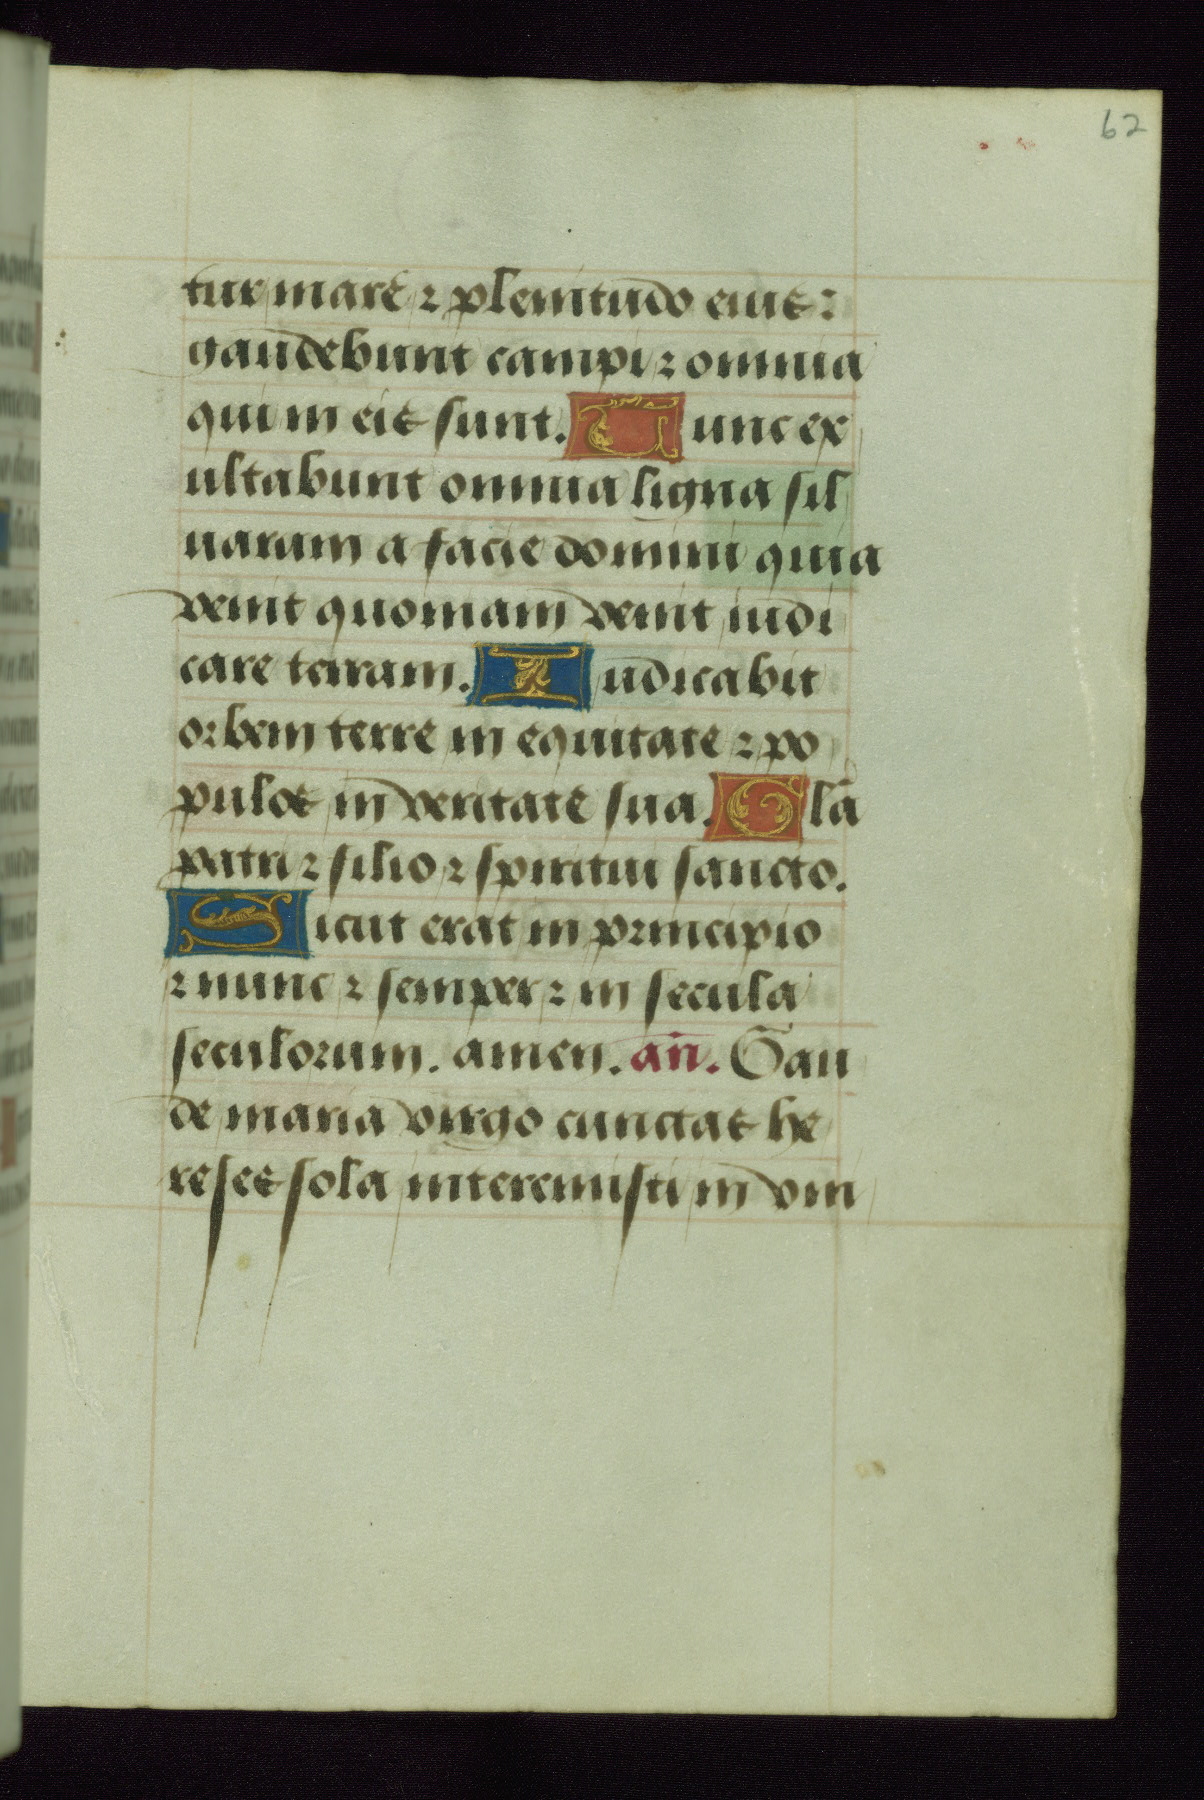 62
tur mare ⁊ plenitudo eius:
gaudebunt campi ⁊ omnia
qui in eis sunt. Tunc ex
ultabunt omnia ligna sil
uaram a facie domini quia
venit quoniam venit iudi
care terram. Iudicabit
orbem terre in equitate ⁊ po
pulos in veritate sua. Gla̅
patri ⁊ filio ⁊ spiritui sancto.
Sicut erat in principio
⁊ nunc ⁊ semper ⁊ in secula
seculorum. amen. an̅. Gau
de maria virgo cunctas he
reses sola interemisti in vni